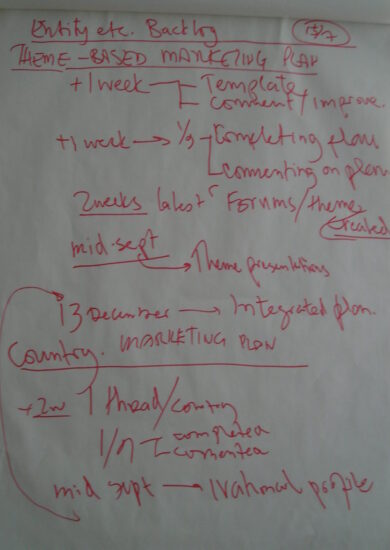 Entity etc. Backlog 15/7
THEME-BASED MARKETING PLAN
+1 week Template
comment/improve.
+1 week → 1/9 Completing plan
commenting on plan
2 weeks latest Forums/theme
created
mid-sept
→ Theme presentations
13 December → Integrated plan.
Country. MARKETING PLAN
+2w 1 thread/country
1/9 completed
commented
mid sept → national people